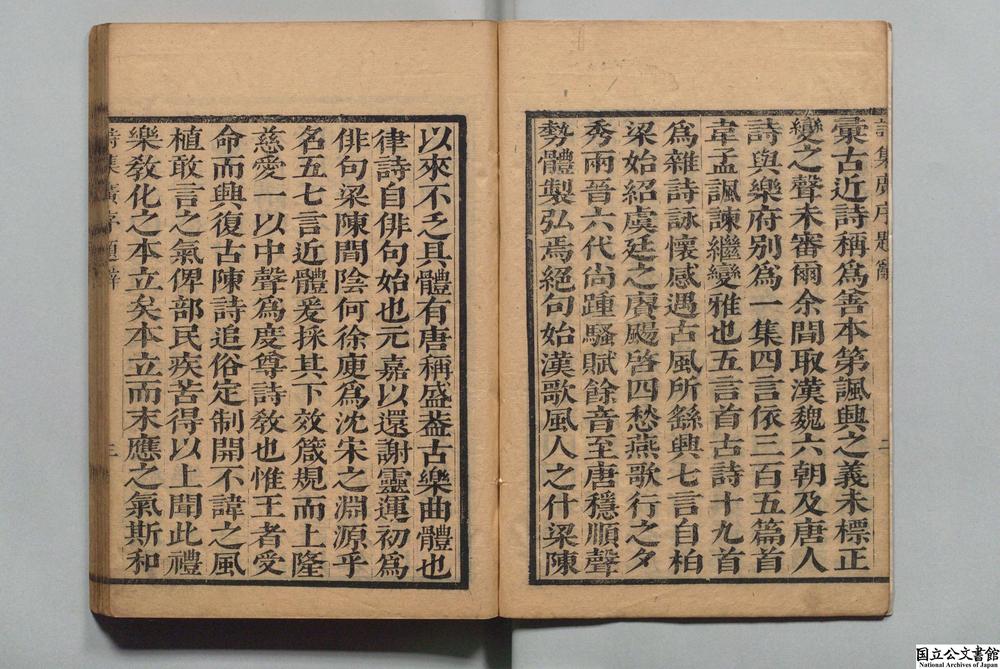 彚古近詩稱爲善本第諷興之義未標正
變之聲未審爾余間取漢魏六朝及唐人
詩與樂府別爲一集四言依三百五篇首
韋孟諷諫繼變雅也五言首古詩十九首
爲雜詩詠懷感遇古風所繇興七言自柏
梁始紹虞廷之賡颺啓四愁燕歌行之夕
秀兩晉六代尙踵騷賦餘音至唐穩順聲
勢體製弘焉絕句始漢歌風人之什梁陳
以來不乏具體有唐稱盛葢古樂曲體也
律詩自俳句始也元嘉以還謝靈運初爲
俳句梁陳間陰何徐庾爲沈宋之淵源乎
名五七言近體爰採其下效箴規而上隆
慈愛一以中聲爲度尊詩敎也惟王者受
命而興復古陳詩追俗定制開不諱之風
植敢言之氣俾部民疾苦得以上聞此禮
樂敎化之本立矣本立而末應之氣斯和
詩集廣序題辭
二
国立公文書館
National Archives of Japan